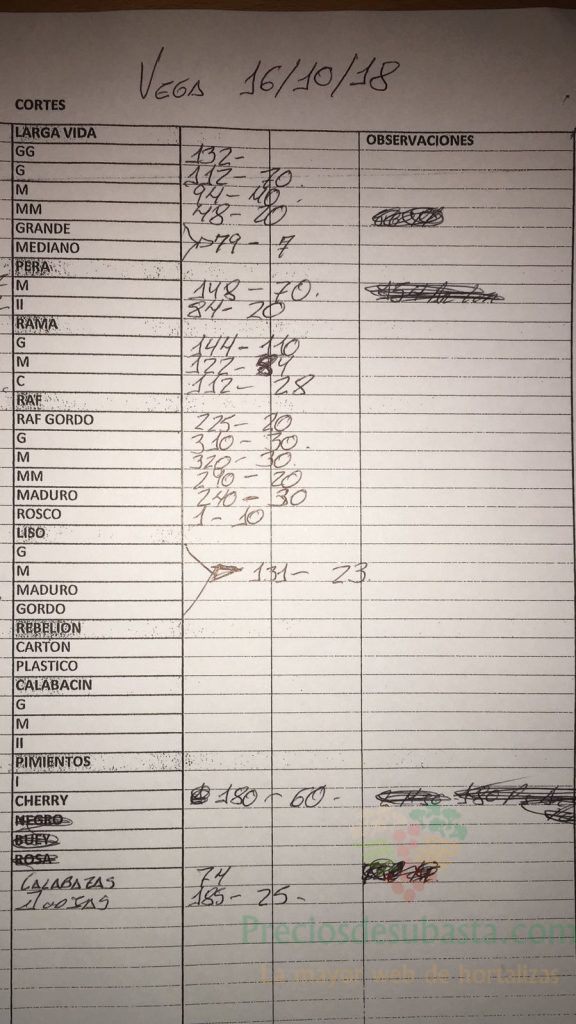 VEGA 16/10/18
CORTES
LARGA VIDA OBSERVACIONES
GG 132-
G 112-70.
M 94-40.
MM 48-20
GRANDE
MEDIANO 79-7
PERA
M 148-70.
II 84-20
RAMA
G 144-110
M 122-84
C 112-28
RAF
RAF GORDO 225-20
G 310-30.
M 320-30.
MM 290-20
MADURO 240-30
ROSCO 1-10
LISO
G
M 131-23
MADURO
GORDO
REBELION
CARTON
PLASTICO
CALABACIN
G
M
II
PIMIENTOS
I
CHERRY 180-60-
NEGRO
BUEY
ROSA
CALABAZAS 74
185-25-
Preciosdesubasta.com
La mayor web de hortalizas